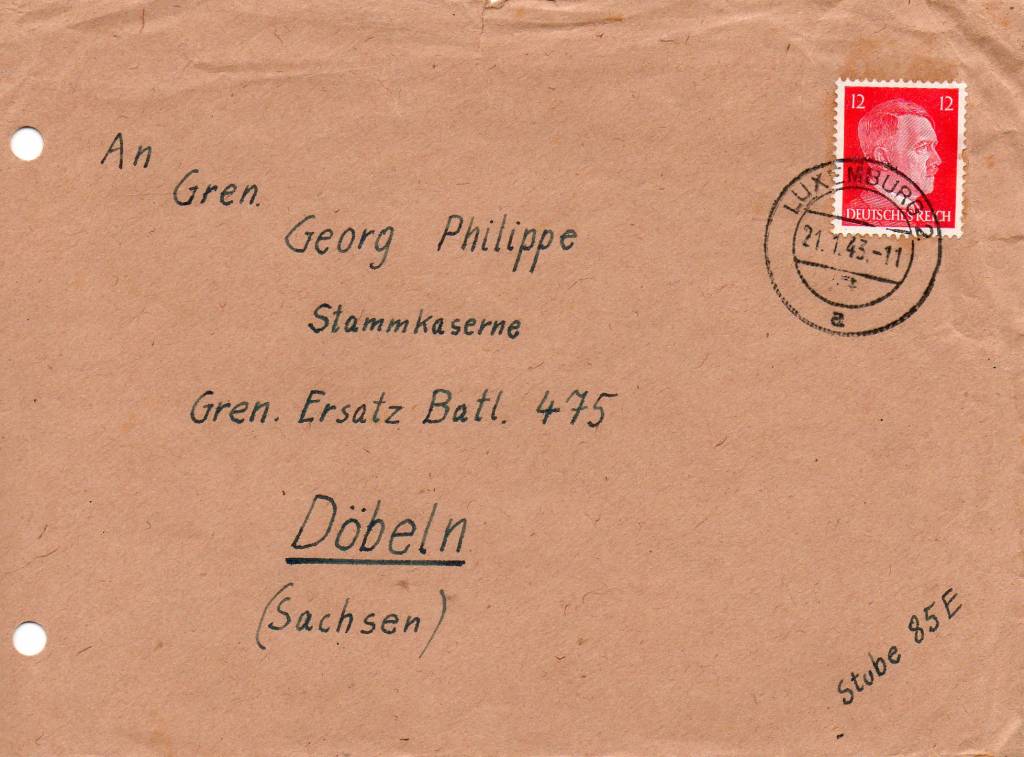 12 12
DEUTSCHES REICH
LUXEMBURG 2
21.1.43.-11
a
An
Gren.
Georg Philippe
Stammkaserne
Gren. Ersatz Batl. 475
Döbeln
(Sachsen)
Stube 85E